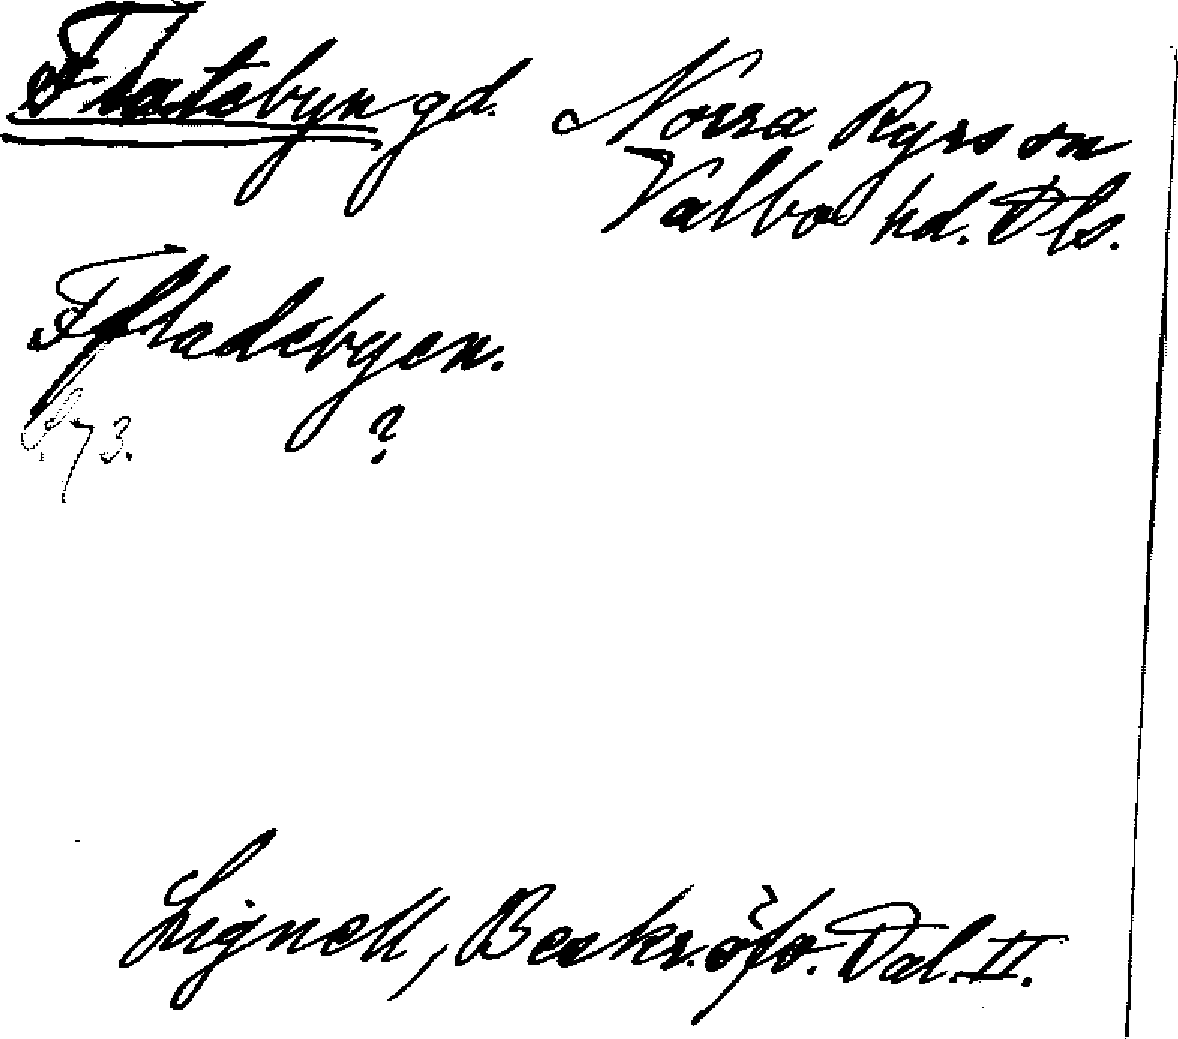 Flatsbyn gd. Norra Ryrs sn
Valbo hd. Dls.
Fladsbyen.
S. 73. ?
Lignell, Beskr. öfv. Dal. II.